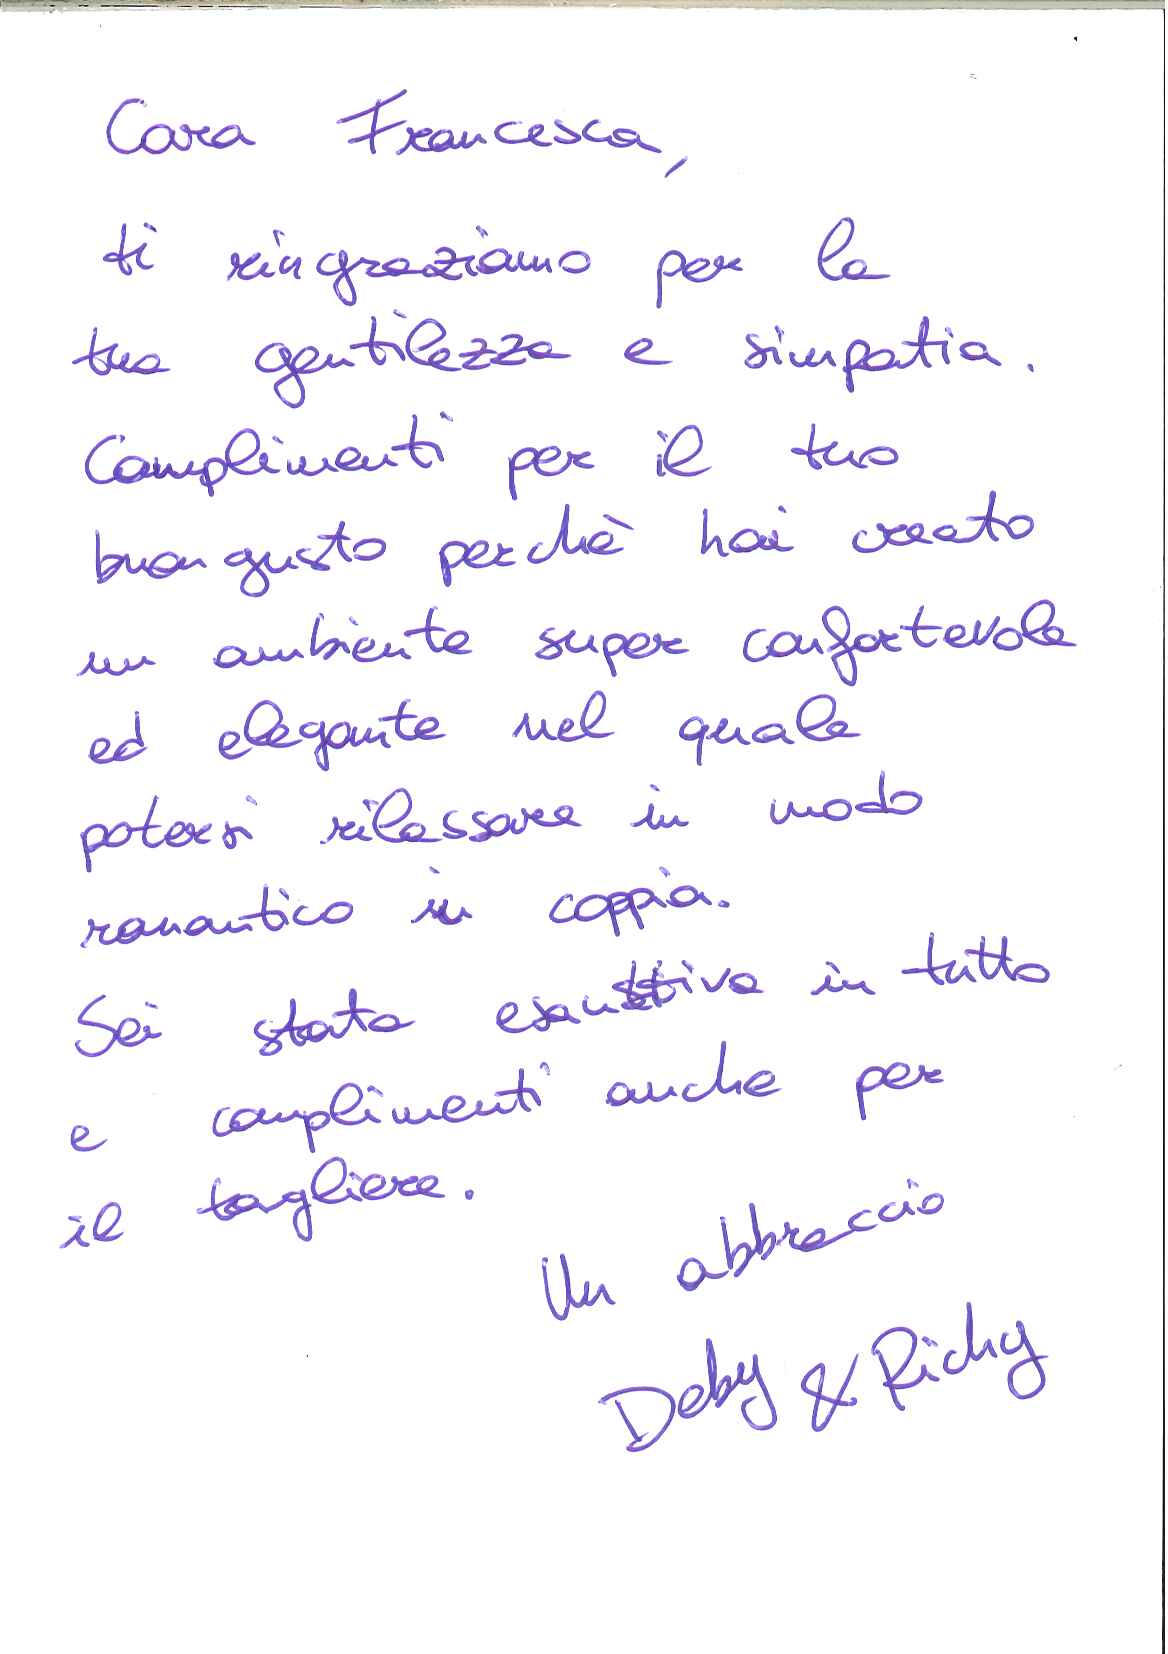 Cara Francesca,
ti ringraziamo per la
tua gentilezza e simpatia.
Complimenti per il tuo
buon gusto perchè hai creato
un ambiente super confortevole
ed elegante nel quale
potersi rilassare in modo
romantico in coppia.
Sei stata esaustiva in tutto
e complimenti anche per
il tagliere.
Un abbraccio
Deby & Richy